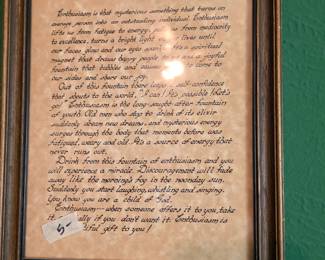 Enthusiasm is that mysterious something that turns an
average person into an outstanding individual. Enthusiasm
lifts us from fatigue to energy, from mediocrity
to excellence, turns a bright light lives until
our faces glow and our eyes spiritual
magnet that draws happy people to a joyful
fountain that bubbles and causes come to
our sides and share our joy.
Out of this fountain there self-confidence
that shouts to the world, "I can! It's possible! Let's
go!" Enthusiasm is the long sought after fountain
of youth. Old men who day to drink of its elixir
suddenly dream new dreams, and mysterious energy
surges through the body that moments before was
fatigued, weary and old. It's a source of energy that
never runs out.
Drink from this fountain of enthusiasm and you
will experience a miracle. Discouragement will fade
away like the morning's fog in the noonday sun.
Suddenly you start laughing, whistling and singing.
You know you are a child of God.
Enthusiasm---when someone offers it to you, take
it. if you don't want it. Enthusiasm is
gift to you!
5-